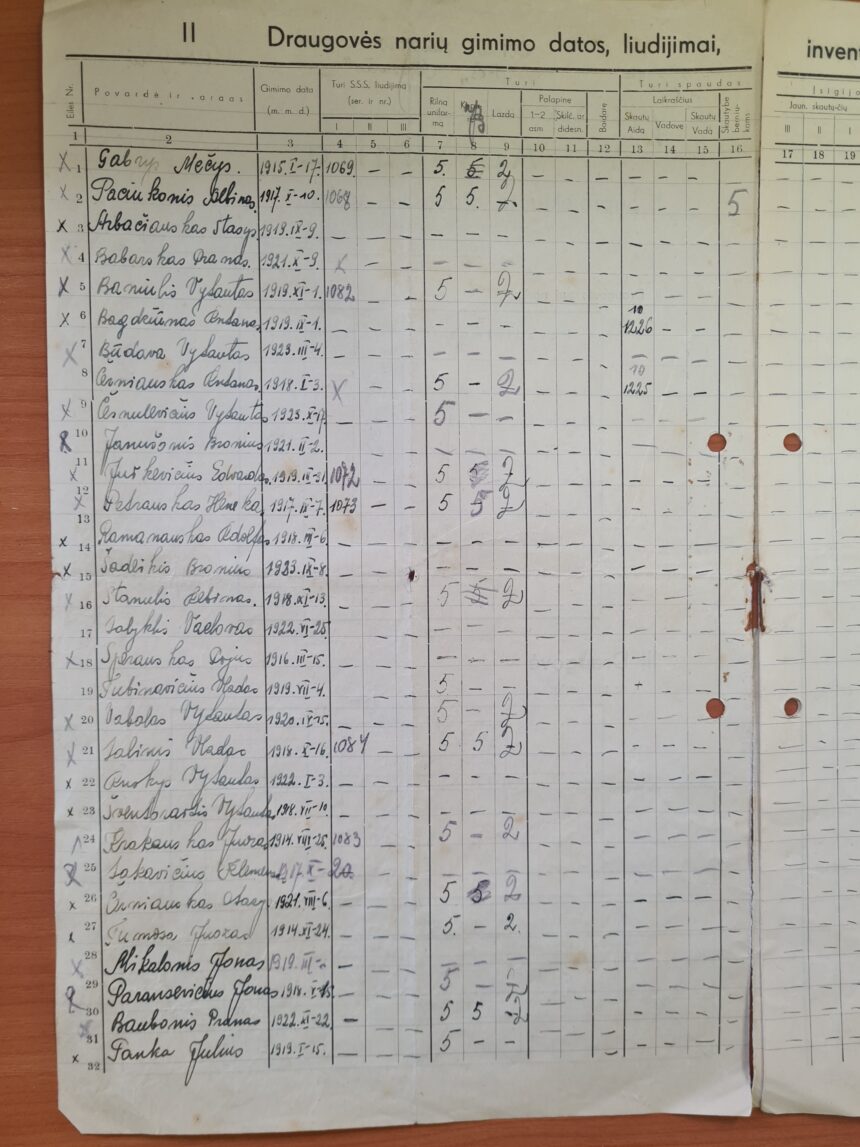 II Draugovės narių gimimo datos, liudijimai, inven
Eilės Nr. Povardė ir vardas Gimimo data (m. m. d.) Turi S.S.S. liudijimą (ser. ir nr.) Turi Turi spaudos Įsigijo
Rilną uniformą Lazdą Palapinę Badare Laikraščius Skautybę berniukams Jaun. skautų-čių
II III 1—2 asm Skilč. ar didesn. Skautų Aidą Vadovę Skautų Vadą III II I
1 2 3 4 5 6 7 8 9 10 11 12 13 14 15 16 17 18 19
x 1 Gabrys Mečys. 1915.I-17. 1069 — — 5. 5 2
x 2 Paciukonis Albinas 1917.I-10. 1068 — — 5 5. 2 5
x 3 Arbačiauskas Stasys 1919.IX-9.
x 4 Babarskas Pranas. 1921.X-9. x
x 5 Baniulis Vytautas 1919.XI-1. 1082 5 — 2
x 6 Bagdžiūnas Antanas 1919.IX-1. 10 1226
x 7 Būdava Vytautas 1923.III-4.
8 Černiauskas Antanas 1918.I-3. x 5 — 2 10 1225
x 9 Česnulevičius Vytautas 1923.X-17. 5 — —
10 Janušonis Bronius 1921.II-2.
x 11 Jurkevičius Edvardas 1919. 1072 5 2
x 12 Petrauskas Henrikas 1917. 1073 — — 5 5 2
13 Ramanauskas Adolfas 1918.III-6.
x 14 Šadeikis Bronius 1923.IX-8.
x 15 Stanulis Albinas. 1918.XI-13. 5 2
x 16 Vaclovas 1922.VI-25
17
x 18 1916.III-15.
19 Tubinavičius Vladas 1919.VII-4. 5 — —
x 20 Vabalas Vytautas 1920. 5 — 2
x 21 Vladas 1918.X-16. 1084 5 5 2
x 22 Vytautas 1922.I-3.
x 23 Vytautas 1918.VII-10.
24 Krakauskas Juozas 1914.VIII-25. 1083 5 — 2
25 Klemensas 1917.X-20.
x 26 Černiauskas 1921.VIII-6. 5 5 2
x 27 Tumosa Juozas 1914.XI-24. 5. — 2.
x 28 Mikalonis Jonas 1919.III-
29 Paransevičius Jonas 1918. 5 —
x 30 Baubonis Pranas 1922.XI-22. — 5 5 2
31 Panka Julius 1919.I-15. 5 — —
x 32